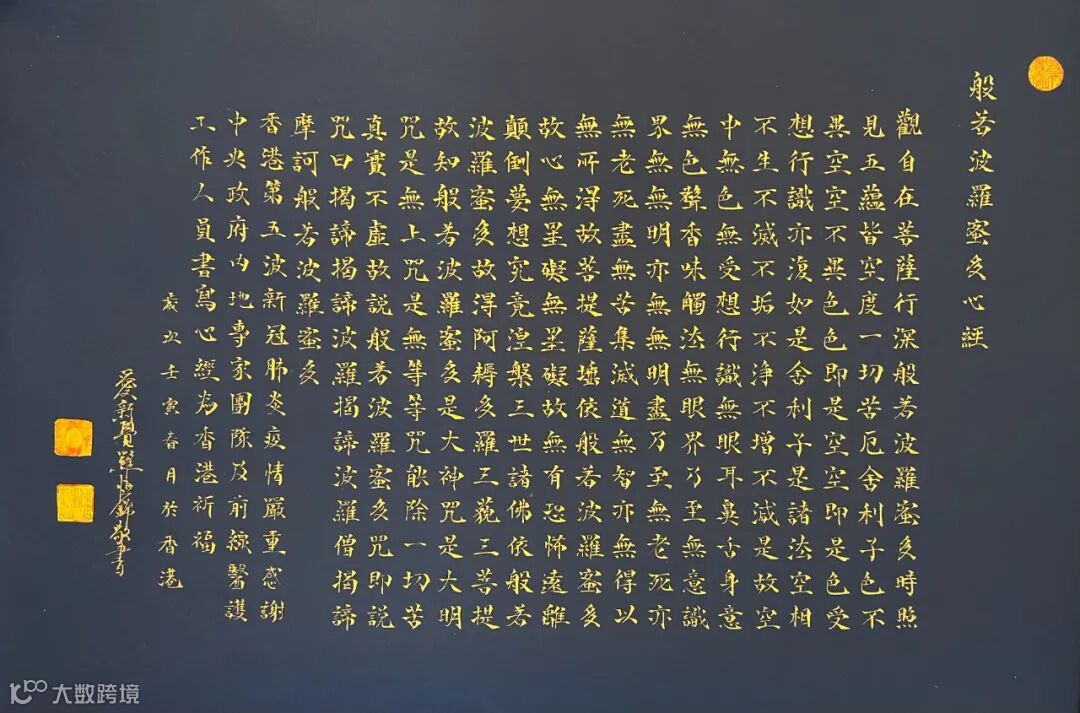 般若波羅蜜多心經
觀自在菩薩行深般若波羅蜜多時照
見五蘊皆空度一切苦厄舍利子色不
異空空不異色色即是空空即是色受
想行識亦復如是舍利子是諸法空相
不生不滅不垢不淨不增不減是故空
中無色無受想行識無眼耳鼻舌身意
無色聲香味觸法無眼界乃至無意識
界無無明亦無無明盡乃至無老死亦
無老死盡無苦集滅道無智亦無得以
無所得故菩提薩埵依般若波羅蜜多
故心無罣礙無罣礙故無有恐怖遠離
顛倒夢想究竟涅槃三世諸佛依般若
波羅蜜多故得阿耨多羅三藐三菩提
故知般若波羅蜜多是大神咒是大明
咒是無上咒是無等等咒能除一切苦
真實不虛故說般若波羅蜜多咒即說
咒曰揭諦揭諦波羅揭諦波羅僧揭諦
摩訶般若波羅蜜多
香港第五波新冠肺炎疫情嚴重感謝
中央政府內地專家團隊及前線醫護
工作人員書寫心經為香港祈福
歲次壬寅春月於香港
愛新覺羅錦敬書
大数跨境